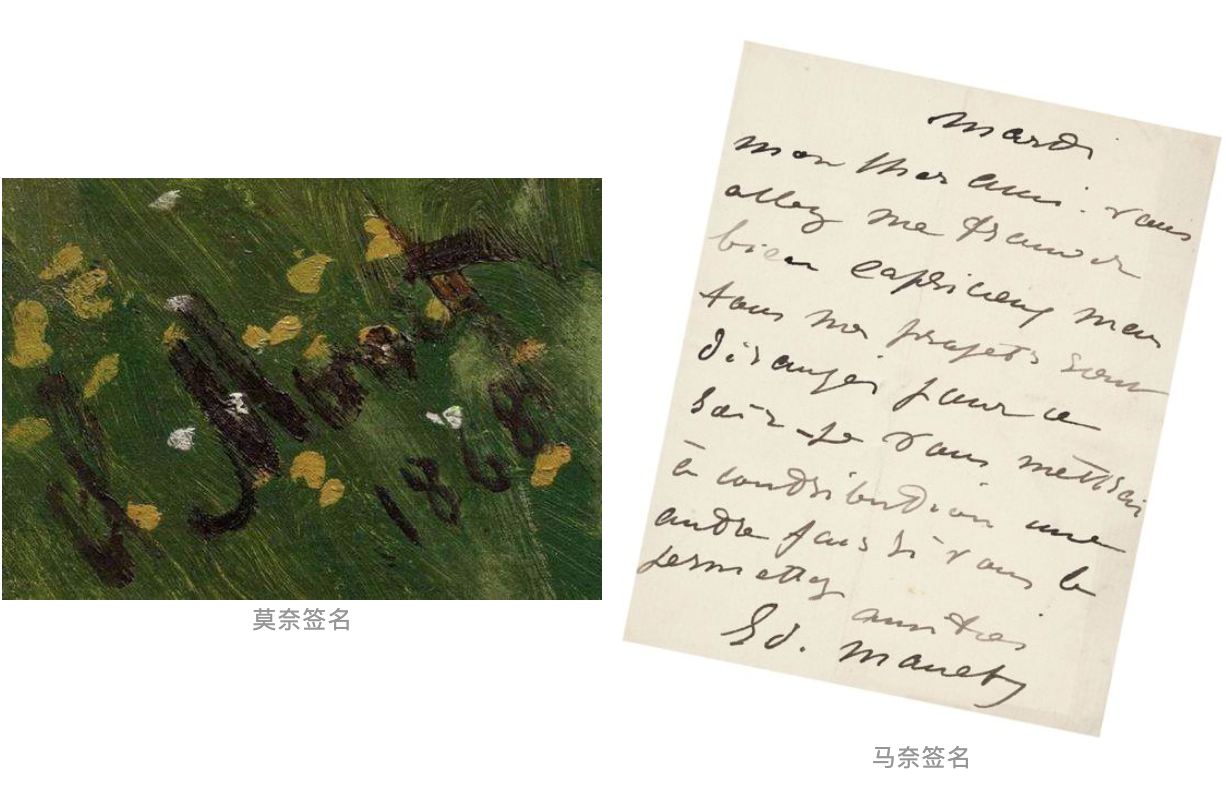 1868
莫奈签名
mardi
mon cher ami. vous
allez me trouver
bien capricieux mais
tous mes projets sont
dérangés pour ce
soir - je vous mettrai
à contribution une
autre fois si vous le
permettez
amitiés
Ed. Manet
马奈签名